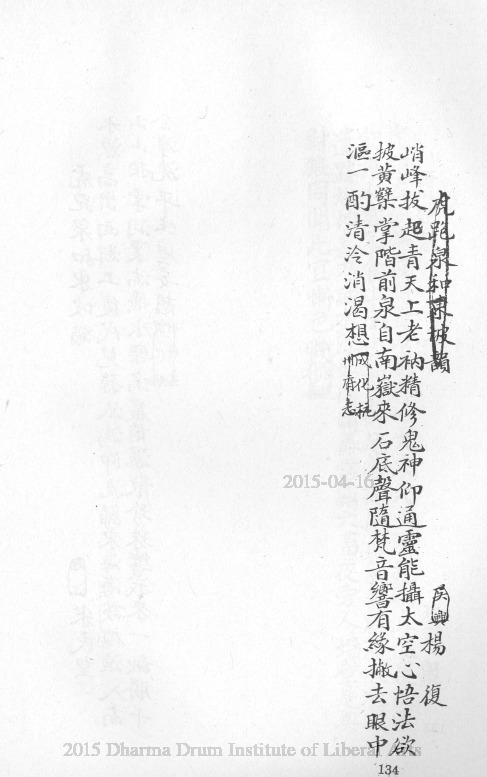 虎跑泉和東坡韻
吴興楊復
峭峰拔起青天上老衲精修鬼神仰通靈能攝太空心悟法欲
披黃櫱掌階前泉自南嶽來石底聲隨梵音響有緣撇去眼中
漚一酌清泠消渴想
成化杭
州府志
134
2015-04-16
2015 Dharma Drum Institute of Liberal Arts